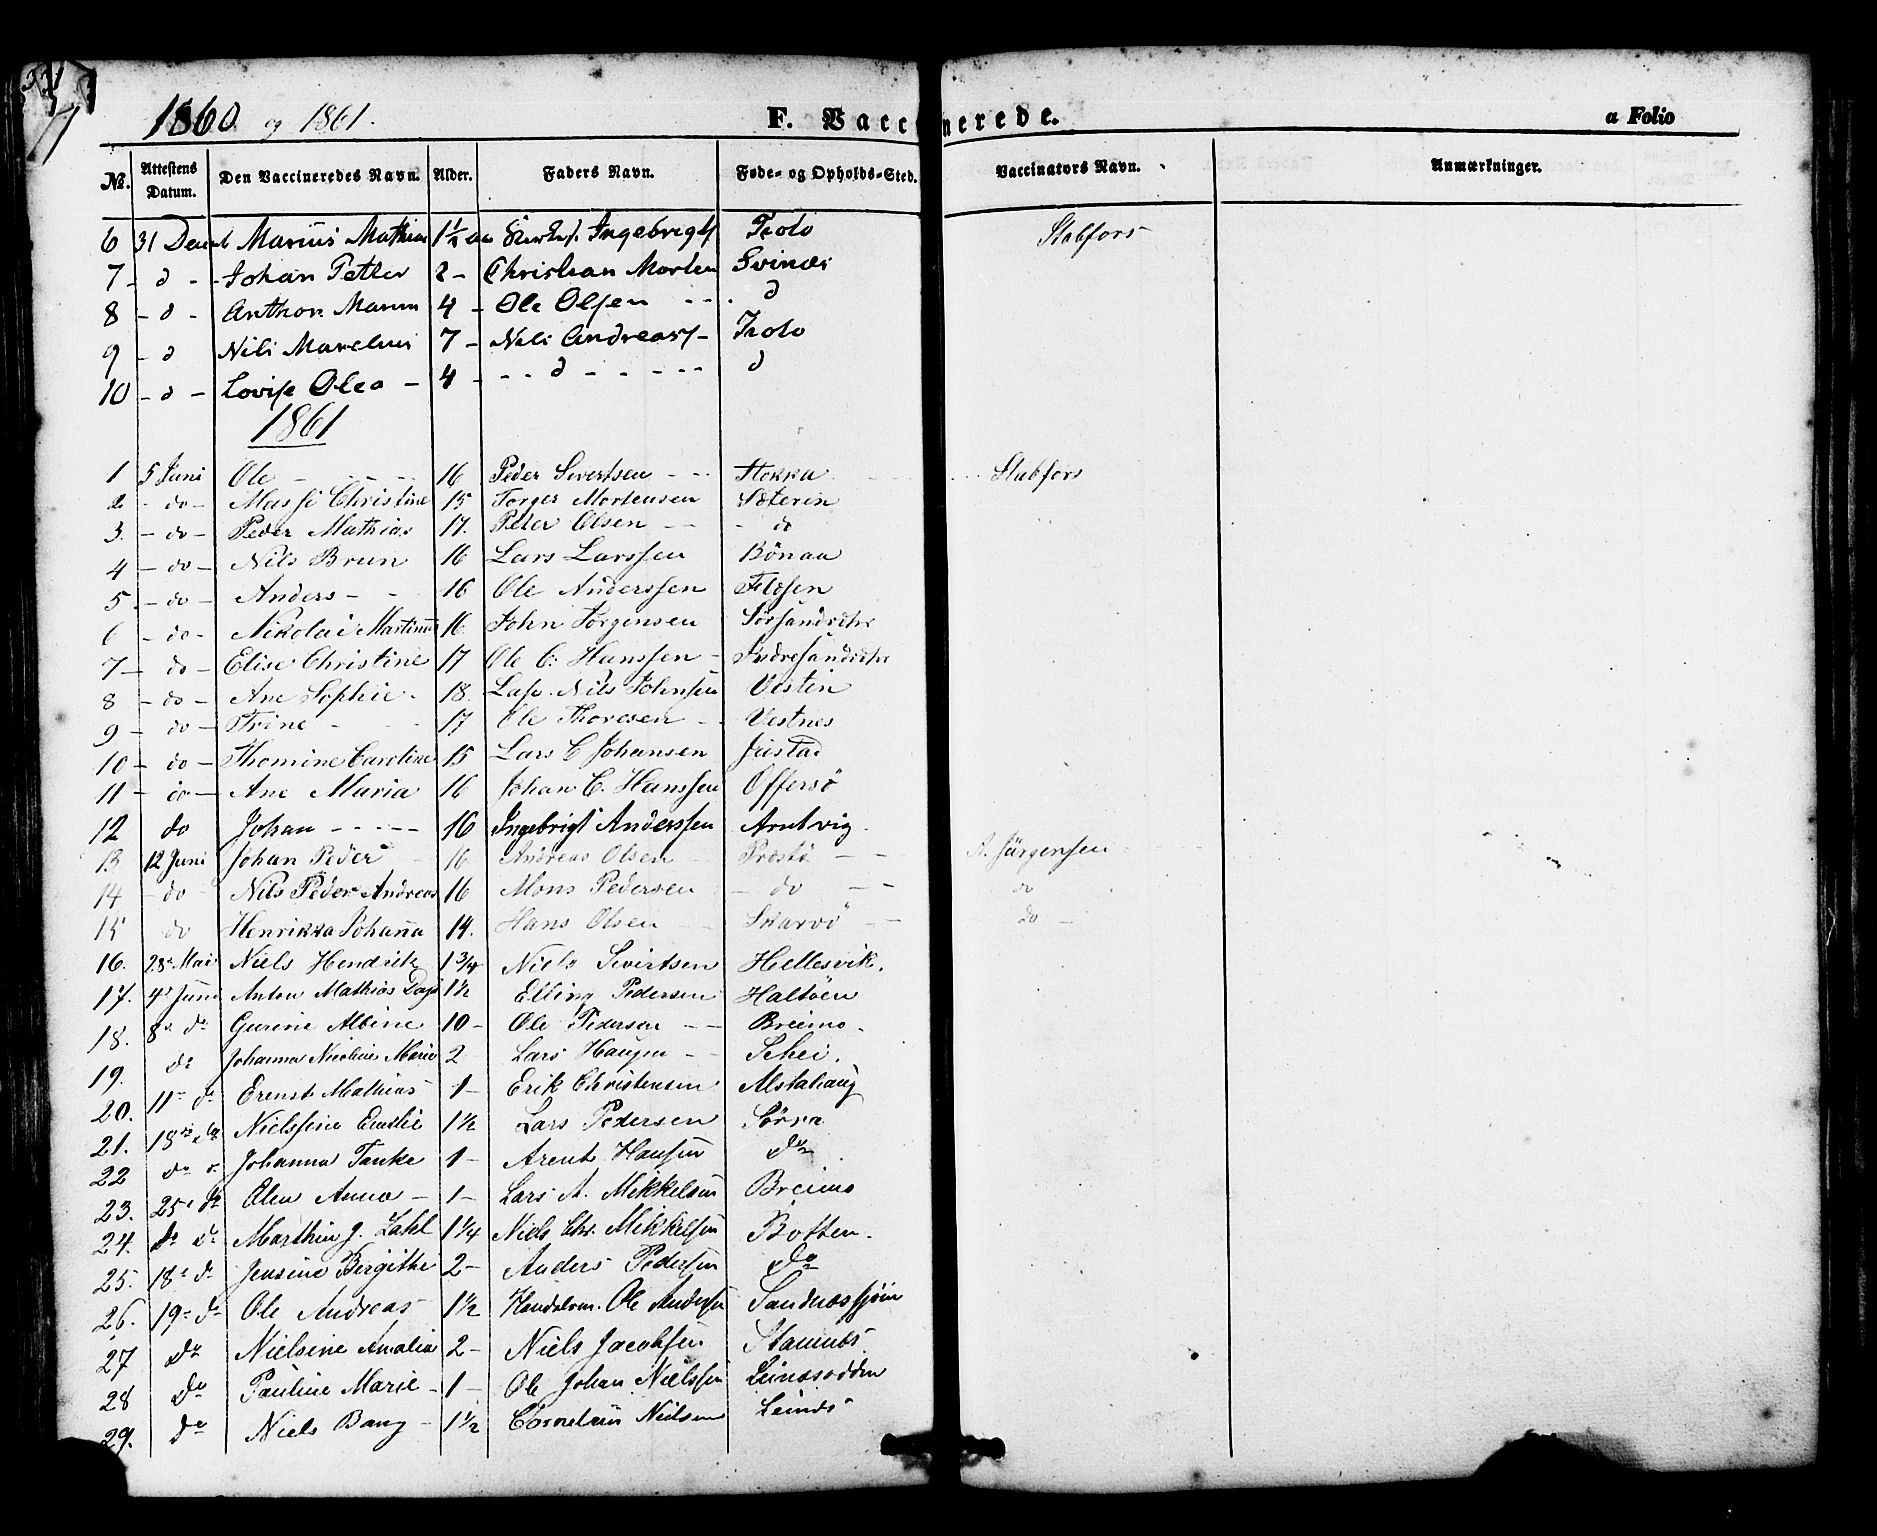 1860 og 1861.
F. Vaccinerede.
a Folio
No. Attestens Datum. Den Vaccineredes Navn. Alder. Faders Navn. Føde- og Opholds-Sted. Vaccinators Navn. Anmærkninger.
6 31 Decemb Marius Mathias 1½ Ingebrigts Trolo Stabfors
7 - d - Johan Petter 2 - Christian Morten Svinæs
8 - d - Anthon Marius 4 - Ole Olsen - - - d
9 - d Nils Marelius 7 - Nils Andreass - Trolo
10 - d - Lovise Olea - 4 - - - d - - - - d
1861
1 5 Juni Ole - - - - 16 Peder Sivertsen - - Stokka Stabfors
2 - do - Masse Christine 15 Torger Mortensen Sæterin
3. - do - Peder Mathias 17. Peter Olsen - - - do
4 - do - Nils Brun 16 Lars Larssen Bönaa
5. - do - Anders - - 16 Ole Anderssen Flosen
6 - do - Nikolai Martinus 16 John Jörgensen
7 - do - Elise Christine 17 Ole C. Hanssen -
8 - do - Ane Sophie - 18. Nils Johnsen Vestin
9 - do - Trine - - 17 Ole Thoresen - - Vestnes
10 - do - Thomine Caroline 15 Lars C Johansen
11 - do - Ane Maria 16 Johan C. Hanssen Offersö
12 do Johan - - - - - 16 Ingebrigt Anderssen Arntvig
13 12 Juni Johan Peder - 16 Andreas Olsen - Præstö - - A. Jürgensen
14 - do - Nils Peder Andreas 16 Mons Pedersen - do - - do
15 do Henrikka Johanna 14. Hans Olsen - Skarvö - - do -
16. 28de Mai Niels Hendrik 1¾ Niels Sivertsen Hellesvik.
17. 4de Juni Anton Mathias 1½ Elling Pedersen Haltöen
18. 8de do Gurine Albine 10 - Ole Pedersen - - Breimo.
19. do Johanna Nicoline Marie 2 - Lars Haugen - - Schei.
20. 11te do Erenst Mathias 1 - Erik Christensen Alstahaug
21. 18de do Nielssine Emilie 1½ Lars Pedersen Sörra
22 do Johanna Tanke 1 - Arent Hansen do
23. 25de do Olea Anna - 1 - Lars A. Mikkelsen Breimo
24. do do Marthin J. Zahl 1¼ Niels Chr. Mikkelsen Botten.
25. 18de do Jensine Bergithe 2 - Anders Pedersen do
26. 19de do Ole Andreas 1½ Handelsm. Ole Andersen Sandnæssjöen
27 do Nielsine Amalia 2 - Niels Jacobsen Stamnæs
28 do Pauline Marie - 1 - Ole Johan Nielssen Leinesodden
29. do Niels Bang - 1½ Cornelius Nielsen Leinæs